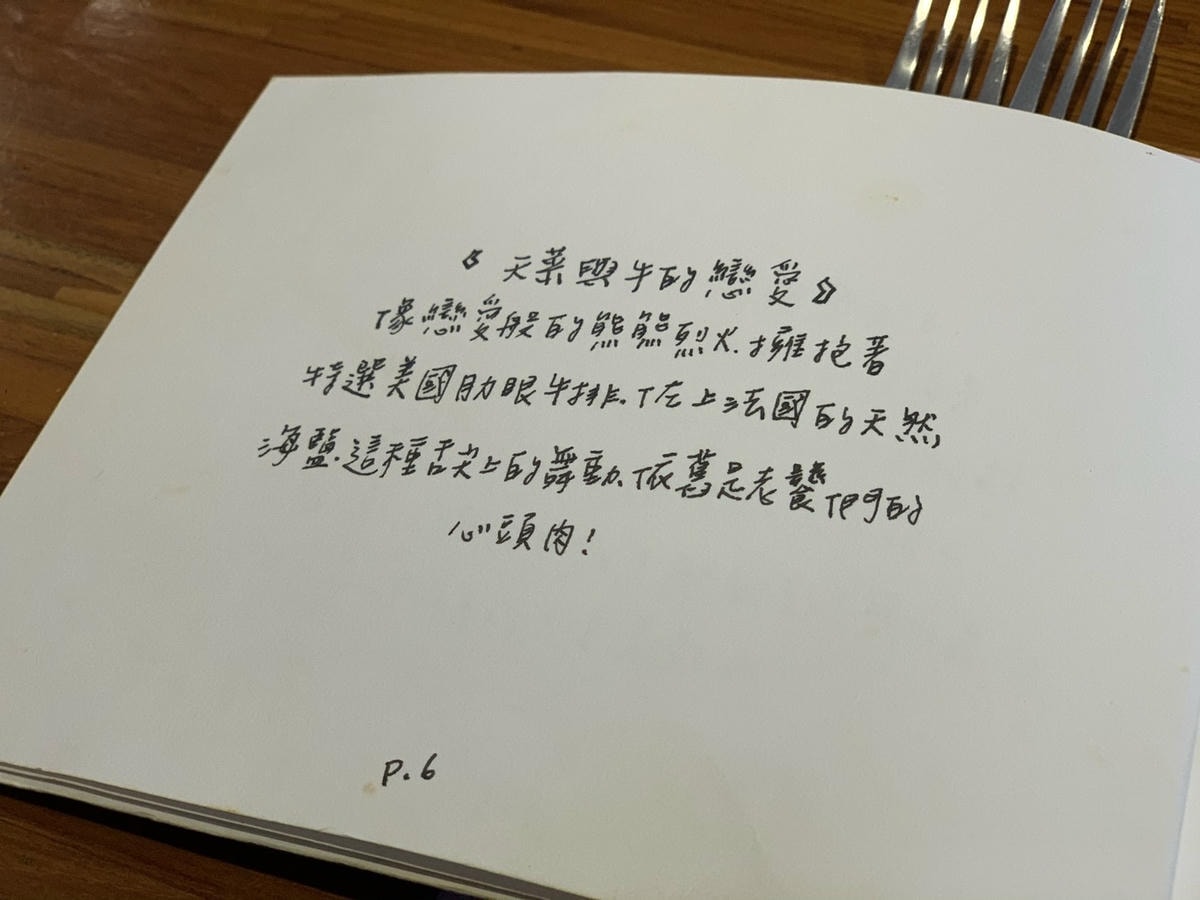 《天菜與牛的戀愛》
像戀愛般的熊熊烈火.擁抱著
特選美國肋眼牛排.佐上法國的天然
海鹽.這種舌尖上的舞動.依舊是老饕們的
心頭肉!
P.6